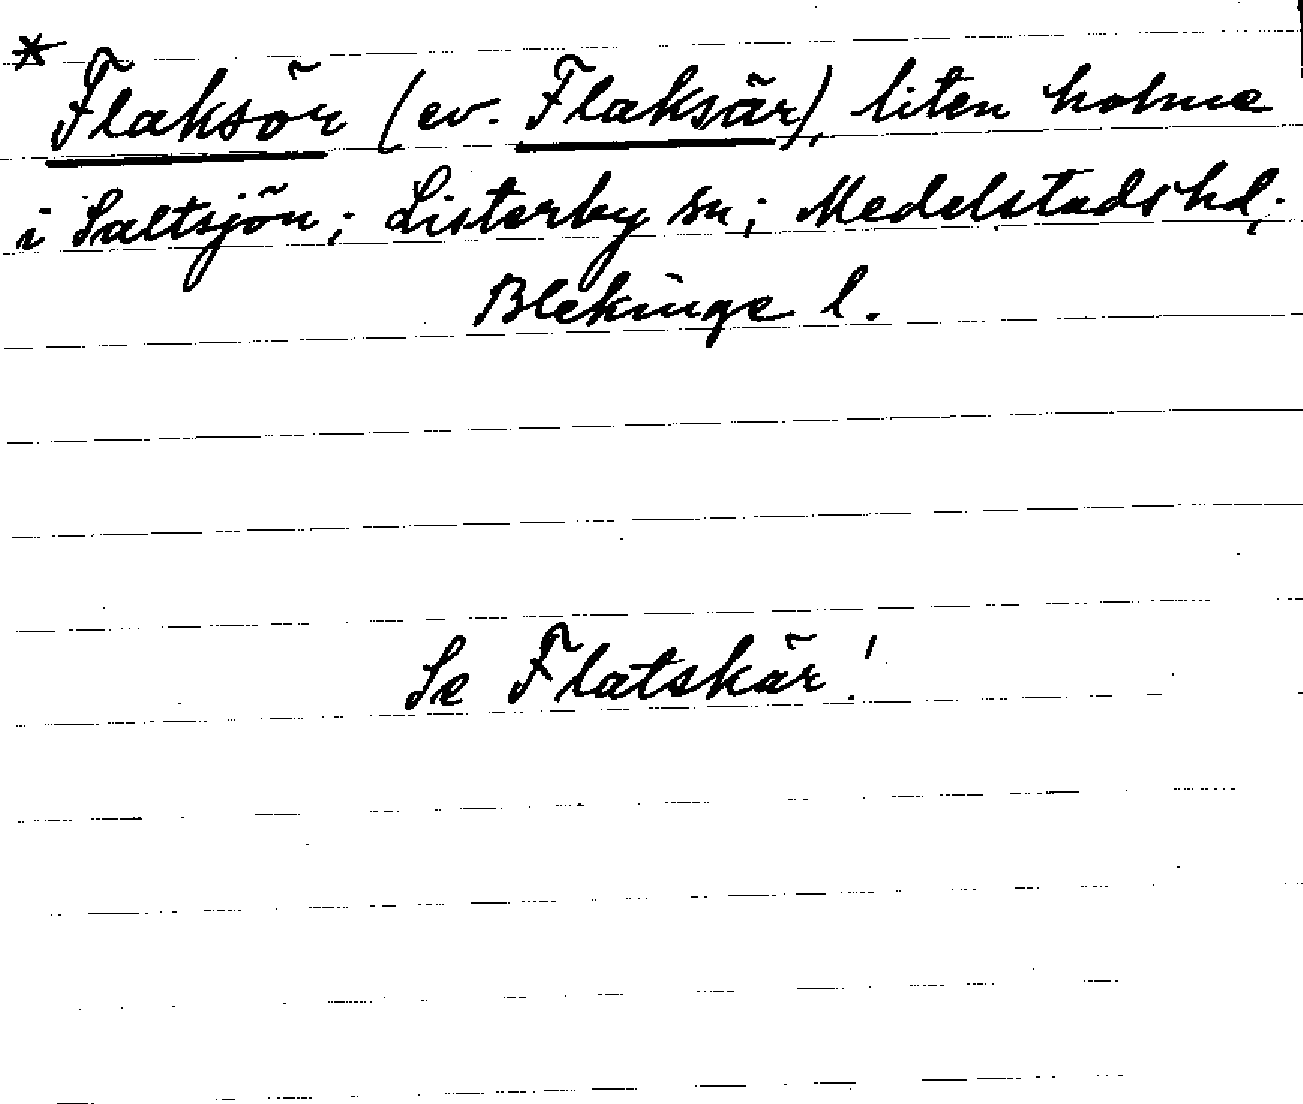 * Flaksör (ev. Flaksär), liten holme
i Saltsjön; Listerby sn; Medelstads hd,
Blekinge l.
Se Flatskär!